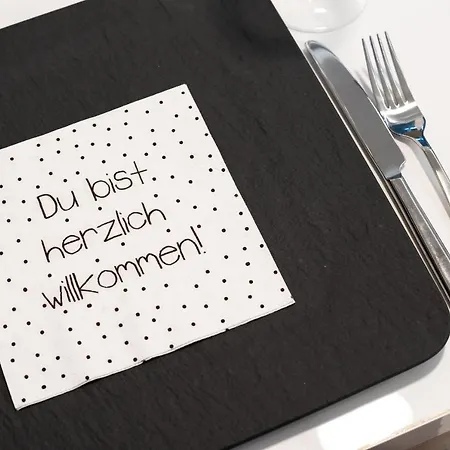 Du bist
herzlich
willkommen!